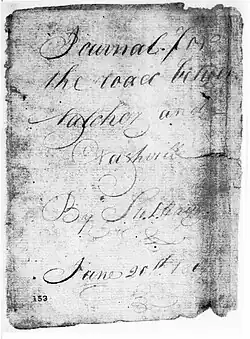 Journal for
the road betwe
Natchez and
Nashvill
By
June 20th
153